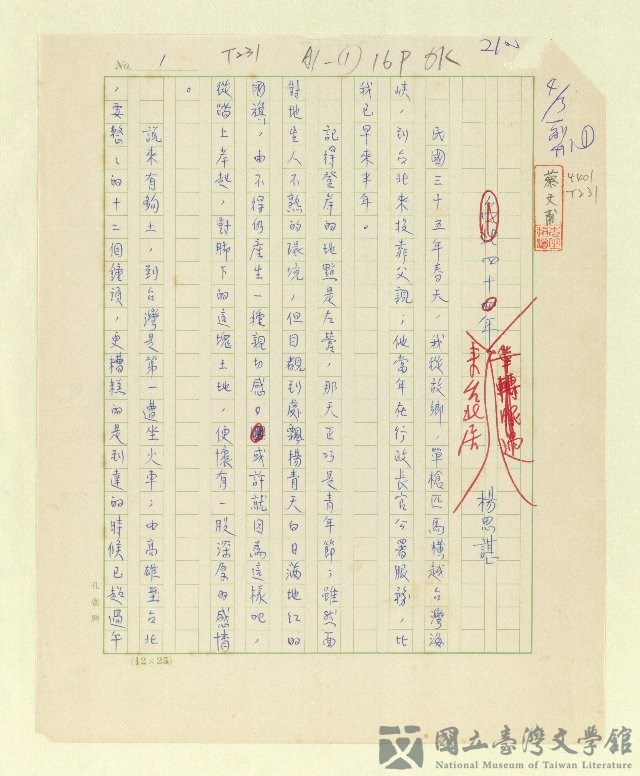 No. 1
T231
A1-① 16P OK
2100
4/3
A1①
4401
T231
蔡文甫
四十四年
來台北居
楊思諶
民國三十五年春天,我從故鄉,單槍匹馬橫越台灣海
峽,到台北來投靠父親;他當年在行政長官公署服務,比
我已早來半年。
記得登岸的地點是左營,那天正巧是青年節;雖然面
對地生人不熟的環境,但目觀到處飄楊青天白日滿地紅的
國旗,由不得仍產生一種親切感。或許就因為這樣吧,
從踏上岸起,對腳下的這塊土地,便懷有一股深厚的感情
。
說來有夠土,到台灣是第一遭坐火車;由高雄至台北
,要整整的十二個鐘頭,更糟糕的是到達的時候已超過午
(12×25)
國立臺灣文學館
National Museum of Taiwan Literature